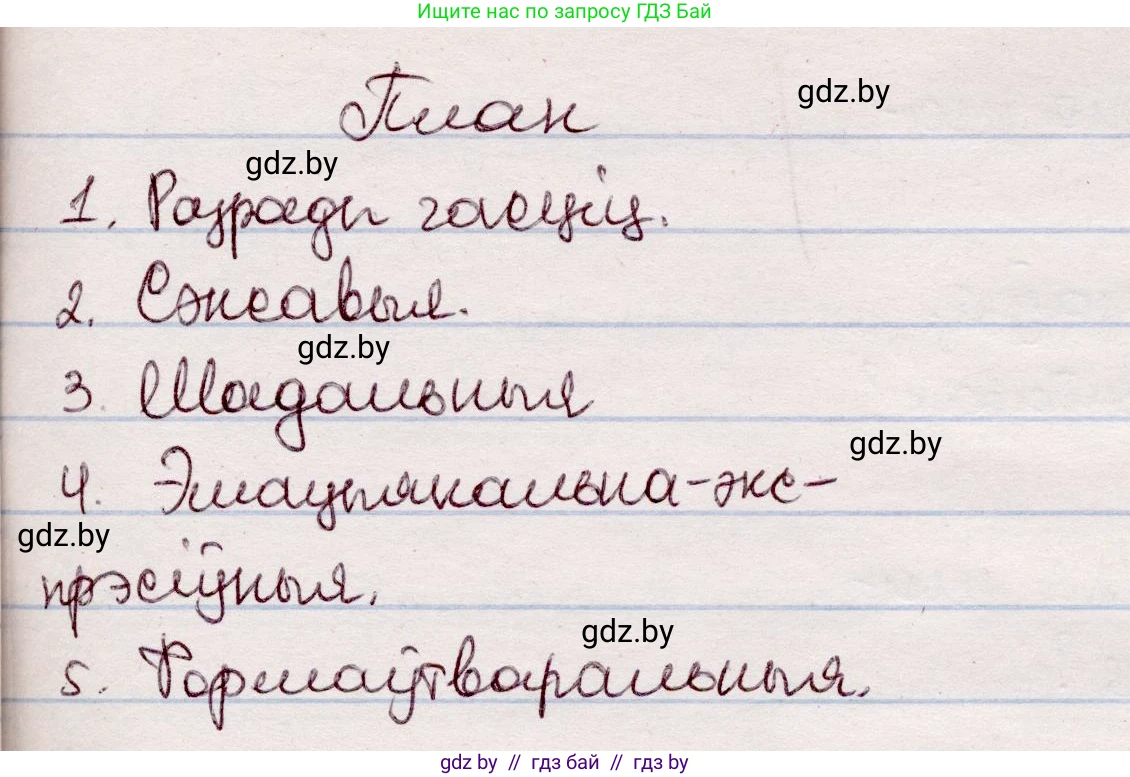 Ищите нас по запросу ГДЗ Бай
План
gdz.by
gdz.by
1. Разрады часціц.
2. Сэнсавыя.
gdz.by
3. Мадальныя
gdz.by
4. Эмацыянальна-экс-
gdz.by
прэсіўныя.
gdz.by
5. Формаўтваральныя.
gdz by // гдз бай // гдз by